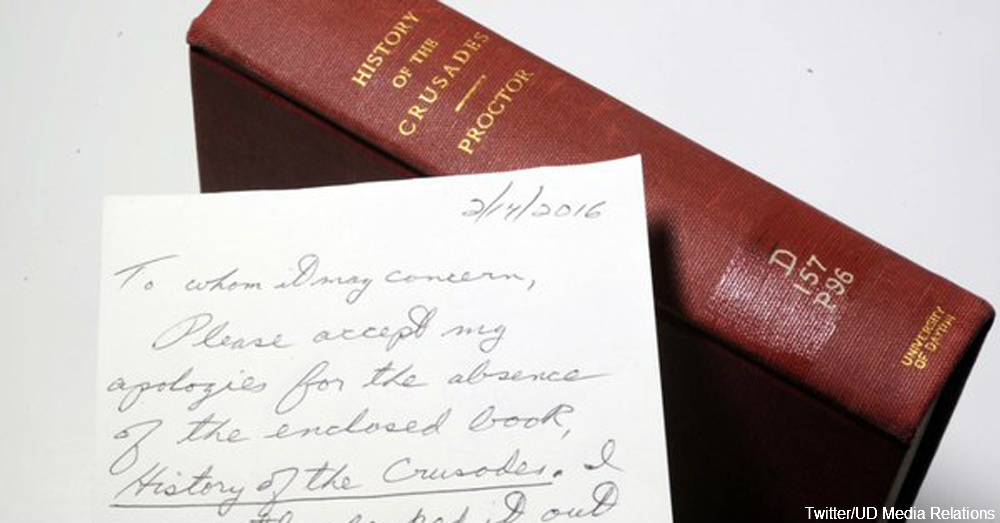 HISTORY
OF THE
CRUSADES
PROCTOR
D
157
P96
UNIVERSITY
OF DAYTON
2/14/2016
To whom it may concern,
Please accept my
apologies for the absence
of the enclosed book,
History of the Crusades. I
it out
Twitter/UD Media Relations